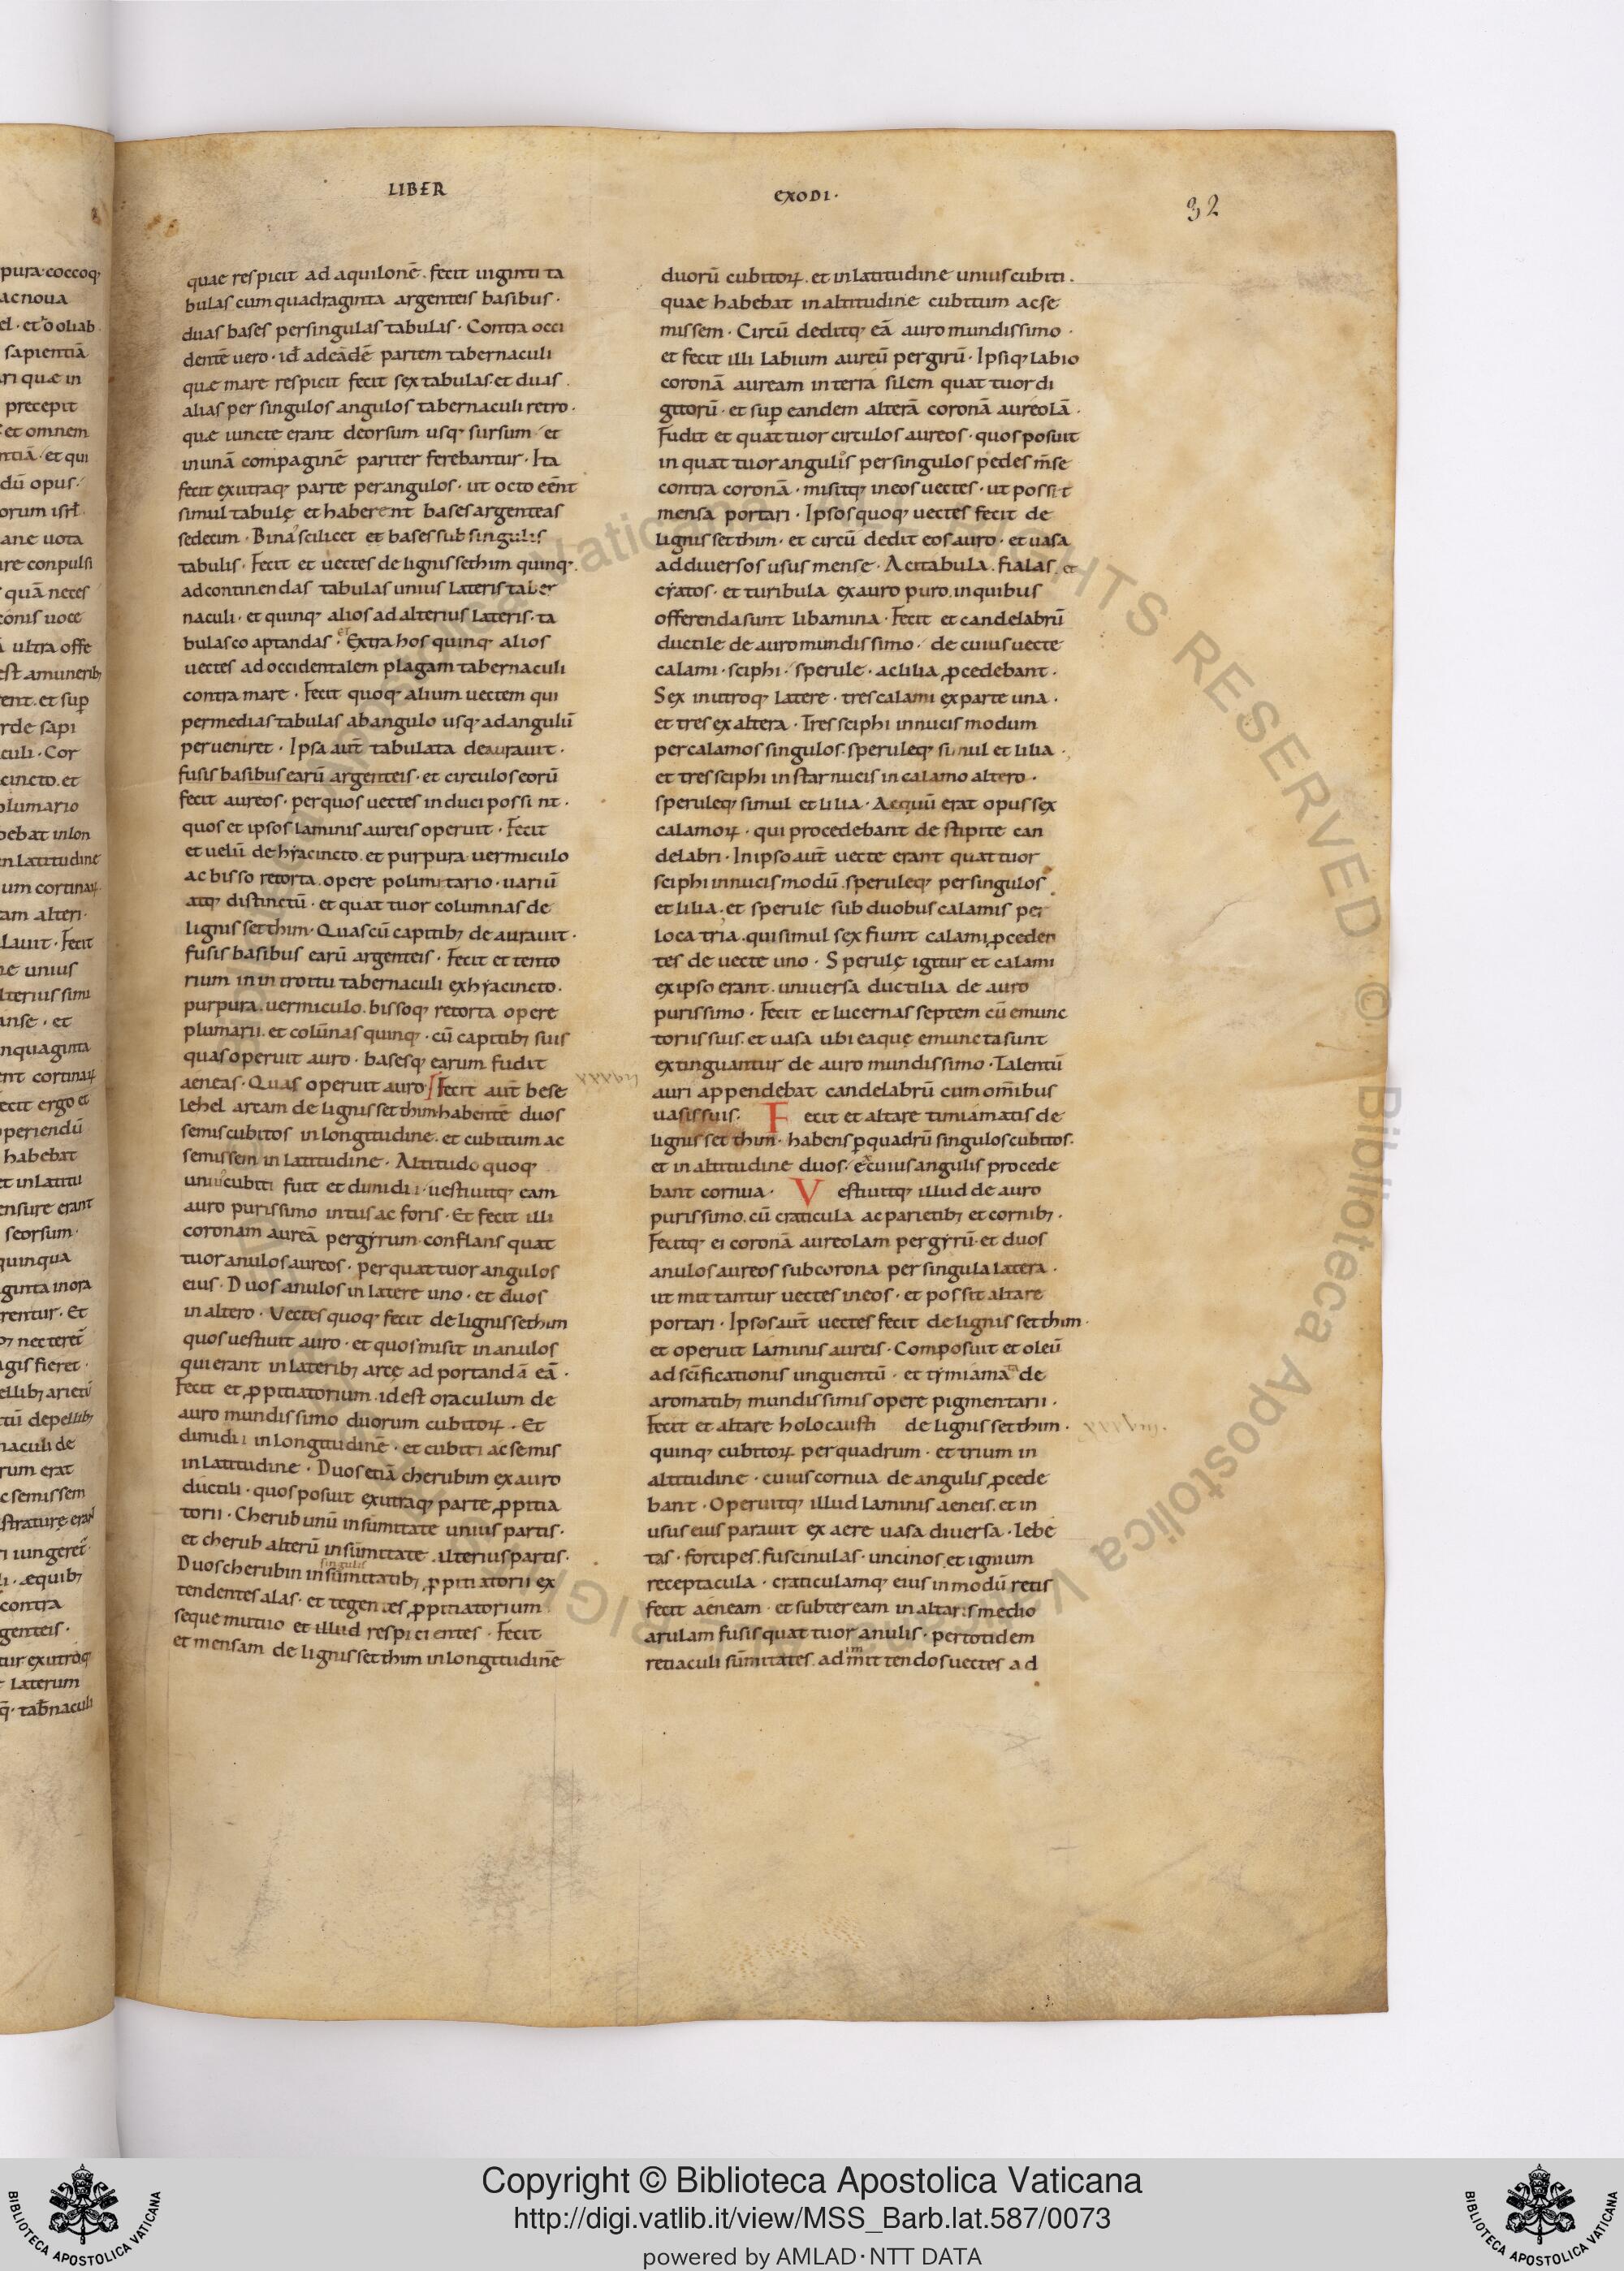 pura·coccoq;
ac noua
el· et ooliab·
sapientiā
ari quæ in
precepit
et omnem
ntiā· et qui
dū opus·
orum isrł
ane uota
are conpulsi
quā neces
conis uoce
ā ultra offe
est a munerib;
rent· et sup
rde sapi
culi· Cor
cincto· et
plumario
bebat in lon
n latitudine
um cortinaꝝ
tam alteri·
lauit· Fecit
ne unius
lterius simi
anse· et
nquaginta
ent cortinaꝝ
ecit ergo et
periendū
habebat
et in latitu
ensure erant
seorsum·
quinqua
ginta in ora
rentur· Et
necteret̄
agis fieret·
ellib; arietū
tū de pellib;
naculi de
rum erat
c semissem
straturę erant
ri iungeret̄·
li· æquib;
contra
genteis·
tur ex utraq;
laterum
q̄· tab̄naculi
LIBER
EXODI·
32
quae respicit ad aquilonē· fecit uiginti ta
bulas cum quadraginta argenteis basibus·
duas bases per singulas tabulas· Contra occi
dentē uero· id̄ ad eādē partem tabernaculi
quæ mare respicit fecit sex tabulas· et duas
alias per singulos angulos tabernaculi retro·
quæ iuncte erant deorsum usq; sursum· et
in unā compaginē pariter ferebantur· Ita
fecit ex utraq; parte per angulos· ut octo eēnt
simul tabulę et haberent bases argenteas
sedecim· Binas scilicet et bases sub singulis
tabulis· Fecit et uectes de lignis sethim quinq;·
ad continendas tabulas unius lateris taber
naculi· et quinq; alios ad alterius lateris· ta
bulas coaptandas· et Extra hos quinq; alios
uectes ad occidentalem plagam tabernaculi
contra mare· Fecit quoq; alium uectem qui
per medias tabulas ab angulo usq; ad angulū
perueniret· Ipsa aut̄ tabulata deaurauit·
fusis basibus earū argenteis· et circulos eorū
fecit aureos· per quos uectes induci possint·
quos et ipsos laminis aureis operuit· Fecit
et uelū de hẏacincto· et purpura· uermiculo
ac bisso retorta· opere polimitario· uariū
atq; distinctū· et quattuor columnas de
lignis setthim· Quas cū capitib; deaurauit·
fusis basibus earū argenteis· Fecit et tento
rium in introitu tabernaculi ex hẏacincto·
purpura· uermiculo· bissoq; retorta opere
plumarii· et colūnas quinq;· cū capitib; suis
quas operuit auro· basesq; earum fudit
aeneas· Quas operuit auro Fecit aut̄ bese
lehel arcam de lignis setthim· habentē duos
semis cubitos in longitudine· et cubitum ac
semissem in latitudine· Altitudo quoq;
unius cubiti fuit et dimidii· uestiuitq; eam
auro purissimo intus ac foris· Et fecit illi
coronam aureā per gẏrum· conflans quat
tuor anulos aureos· per quattuor angulos
eius· Duos anulos in latere uno· et duos
in altero· Vectes quoq; fecit de lignis sethim
quos uestiuit auro· et quos misit in anulos
qui erant in laterib; arcę ad portandā eā·
Fecit et ꝓpitiatorium· id est oraculum de
auro mundissimo duorum cubitoꝝ· Et
dimidii in longitudinē· et cubiti ac semis
in latitudine· Duos etiā cherubim ex auro
ductili· quos posuit ex utraq; parte ꝓpitia
torii· Cherub unū in sūmitate unius partis·
et cherub alterū in sūmitate alterius partis·
singulis
Duos cherubin in sūmitatib; ꝓpitiatorii ex
tendentes alas· et tegentes ꝓpitiatorium
seque mutuo et illud respicientes· Fecit
et mensam de lignis setthim in longitudinē
duorū cubitoꝝ· et in latitudine unius cubiti·
quae habebat in altitudine cubitum ac se
missem· Circū deditq; eā auro mundissimo·
et fecit illi labium aureū per girū· Ipsiq; labio
coronā auream interrasilem quattuor di
gitorū· et suꝑ eandem alterā coronā aureolā·
Fudit et quattuor circulos aureos· quos posuit
in quattuor angulis per singulos pedes m̄se
contra coronā· misitq; in eos uectes· ut possit
mensa portari· Ipsos quoq; uectes fecit de
lignis setthim· et circū dedit eos auro· et uasa
ad diuersos usus mense· Acitabula· fialas· et
cẏatos· et turibula ex auro puro· in quibus
offerenda sunt libamina· Fecit et candelabrū
ductile de auro mundissimo· de cuius uecte
calami· sciphi· sperule· ac lilia ꝓcedebant·
Sex in utroq; latere· tres calami ex parte una·
et tres ex altera· Tres sciphi in nucis modum
per calamos singulos· speruleq; simul et lilia·
et tres sciphi instar nucis in calamo altero·
speruleq; simul et lilia· Aequū erat opus sex
calamoꝝ· qui procedebant de stipite can
delabri· In ipso aut̄ uecte erant quattuor
sciphi in nucis modū· speruleq; per singulos
et lilia· et sperule sub duobus calamis per
loca tria· qui simul sex fiunt calami ꝓceden
tes de uecte uno· Sperulę igitur et calami
ex ipso erant· uniuersa ductilia de auro
purissimo· Fecit et lucernas septem cū emunc
toriis suis· et uasa ubi ea quę emuncta sunt
extinguantur de auro mundissimo· Talentū
auri appendebat candelabrū cum om̄ibus
uasis suis· Fecit et altare timiamatis de
lignis setthim· habens ꝑ quadrū singulos cubitos·
et in altitudine duos· e cuius angulis procede
bant cornua· Vestiuitq; illud de auro
purissimo· cū craticula ac parietib; et cornib;·
Fecitq; ei coronā aureolam per gẏrū· et duos
anulos aureos sub corona per singula latera·
ut mittantur uectes in eos· et possit altare
portari· Ipsos aut̄ uectes fecit de lignis setthim·
et operuit laminis aureis· Composuit et oleū
ad sc̄ificationis unguentū· et tẏmiama de
aromatib; mundissimis opere pigmentarii·
Fecit et altare holocausti de lignis setthim·
quinq; cubitoꝝ per quadrum· et trium in
altitudine· cuius cornua de angulis ꝓcede
bant· Operuitq; illud laminis aeneis· et in
usus eius parauit ex aere uasa diuersa· lebe
tas· forcipes· fuscinulas· uncinos· et ignium
receptacula· craticulamq; eius in modū retis
fecit aeneam· et subter eam in altaris medio
arulam fusis quattuor anulis· per totidem
retiaculi sūmitates· ad im̄ittendos uectes ad
Copyright © Biblioteca Apostolica Vaticana
http://digi.vatlib.it/view/MSS_Barb.lat.587/0073
powered by AMLAD·NTT DATA
BIBLIOTECA APOSTOLICA VATICANA
BIBLIOTECA APOSTOLICA VATICANA